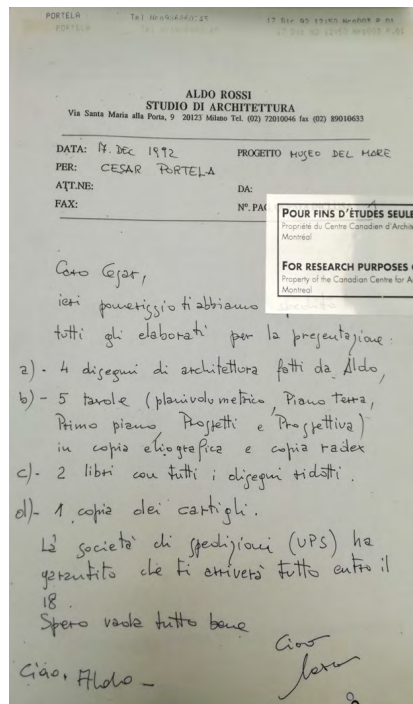 PORTELA Tel 17 Dic 92 12:50 P.01
PORTELA 17 Dic 92 12:50 P.01
ALDO ROSSI
STUDIO DI ARCHITETTURA
Via Santa Maria alla Porta, 9 20123 Milano Tel. (02) 72010046 fax (02) 89010633
DATA: 17. DEC 1992 PROGETTO MUSEO DEL MARE
PER: CESAR PORTELA
ATT.NE: DA:
FAX: N°. PAG
POUR FINS D'ÉTUDES SEULE
Propriété du Centre Canadien d'Archite
Montréal
FOR RESEARCH PURPOSES
Property of the Canadian Centre for A
Montreal
Caro Cesar,
ieri pomeriggio ti abbiamo
tutti gli elaborati per la presentazione:
a)- 4 disegni di architettura fatti da Aldo,
b)- 5 tavole (planivolumetrico, Piano terra,
Primo piano, Prospetti e Prospettiva)
in copia eliografica e copia radex
c)- 2 libri con tutti i disegni ridotti.
d)- 1 copia dei cartigli.
La società di spedizioni (UPS) ha
garantito che ti arriverà tutto entro il
18.
Spero vada tutto bene
Ciao
Ciao, Aldo -